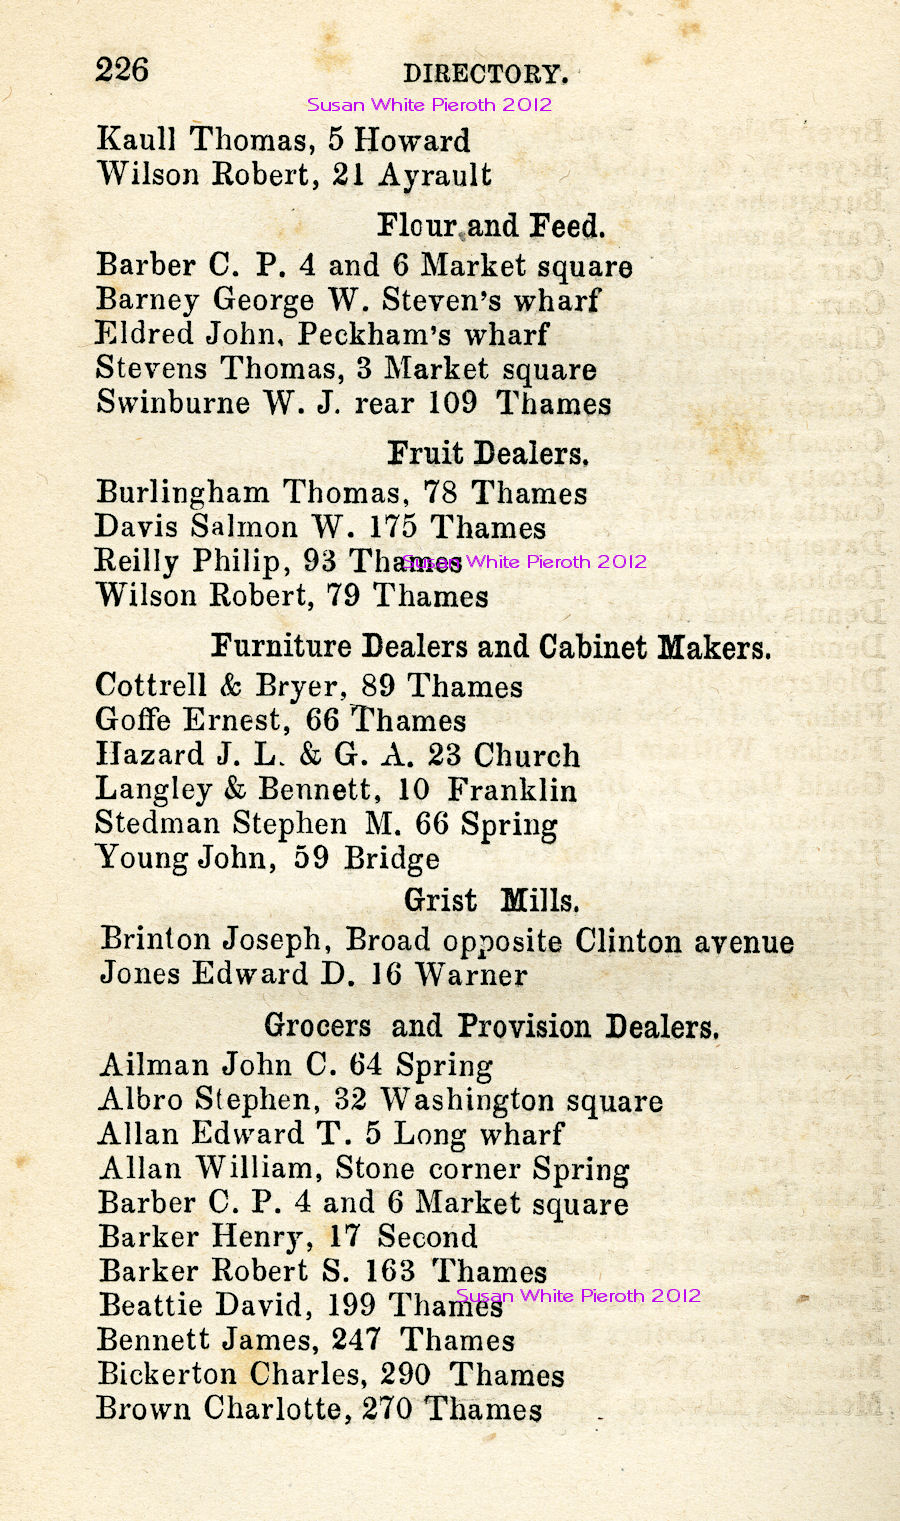 226 DIRECTORY.
Susan White Pieroth 2012
Kaull Thomas, 5 Howard
Wilson Robert, 21 Ayrault
Flour and Feed.
Barber C. P. 4 and 6 Market square
Barney George W. Steven's wharf
Eldred John, Peckham's wharf
Stevens Thomas, 3 Market square
Swinburne W. J. rear 109 Thames
Fruit Dealers.
Burlingham Thomas, 78 Thames
Davis Salmon W. 175 Thames
Reilly Philip, 93 Thames
Susan White Pieroth 2012
Wilson Robert, 79 Thames
Furniture Dealers and Cabinet Makers.
Cottrell & Bryer, 89 Thames
Goffe Ernest, 66 Thames
Hazard J. L. & G. A. 23 Church
Langley & Bennett, 10 Franklin
Stedman Stephen M. 66 Spring
Young John, 59 Bridge
Grist Mills.
Brinton Joseph, Broad opposite Clinton avenue
Jones Edward D. 16 Warner
Grocers and Provision Dealers.
Ailman John C. 64 Spring
Albro Stephen, 32 Washington square
Allan Edward T. 5 Long wharf
Allan William, Stone corner Spring
Barber C. P. 4 and 6 Market square
Barker Henry, 17 Second
Barker Robert S. 163 Thames
Susan White Pieroth 2012
Beattie David, 199 Thames
Bennett James, 247 Thames
Bickerton Charles, 290 Thames
Brown Charlotte, 270 Thames